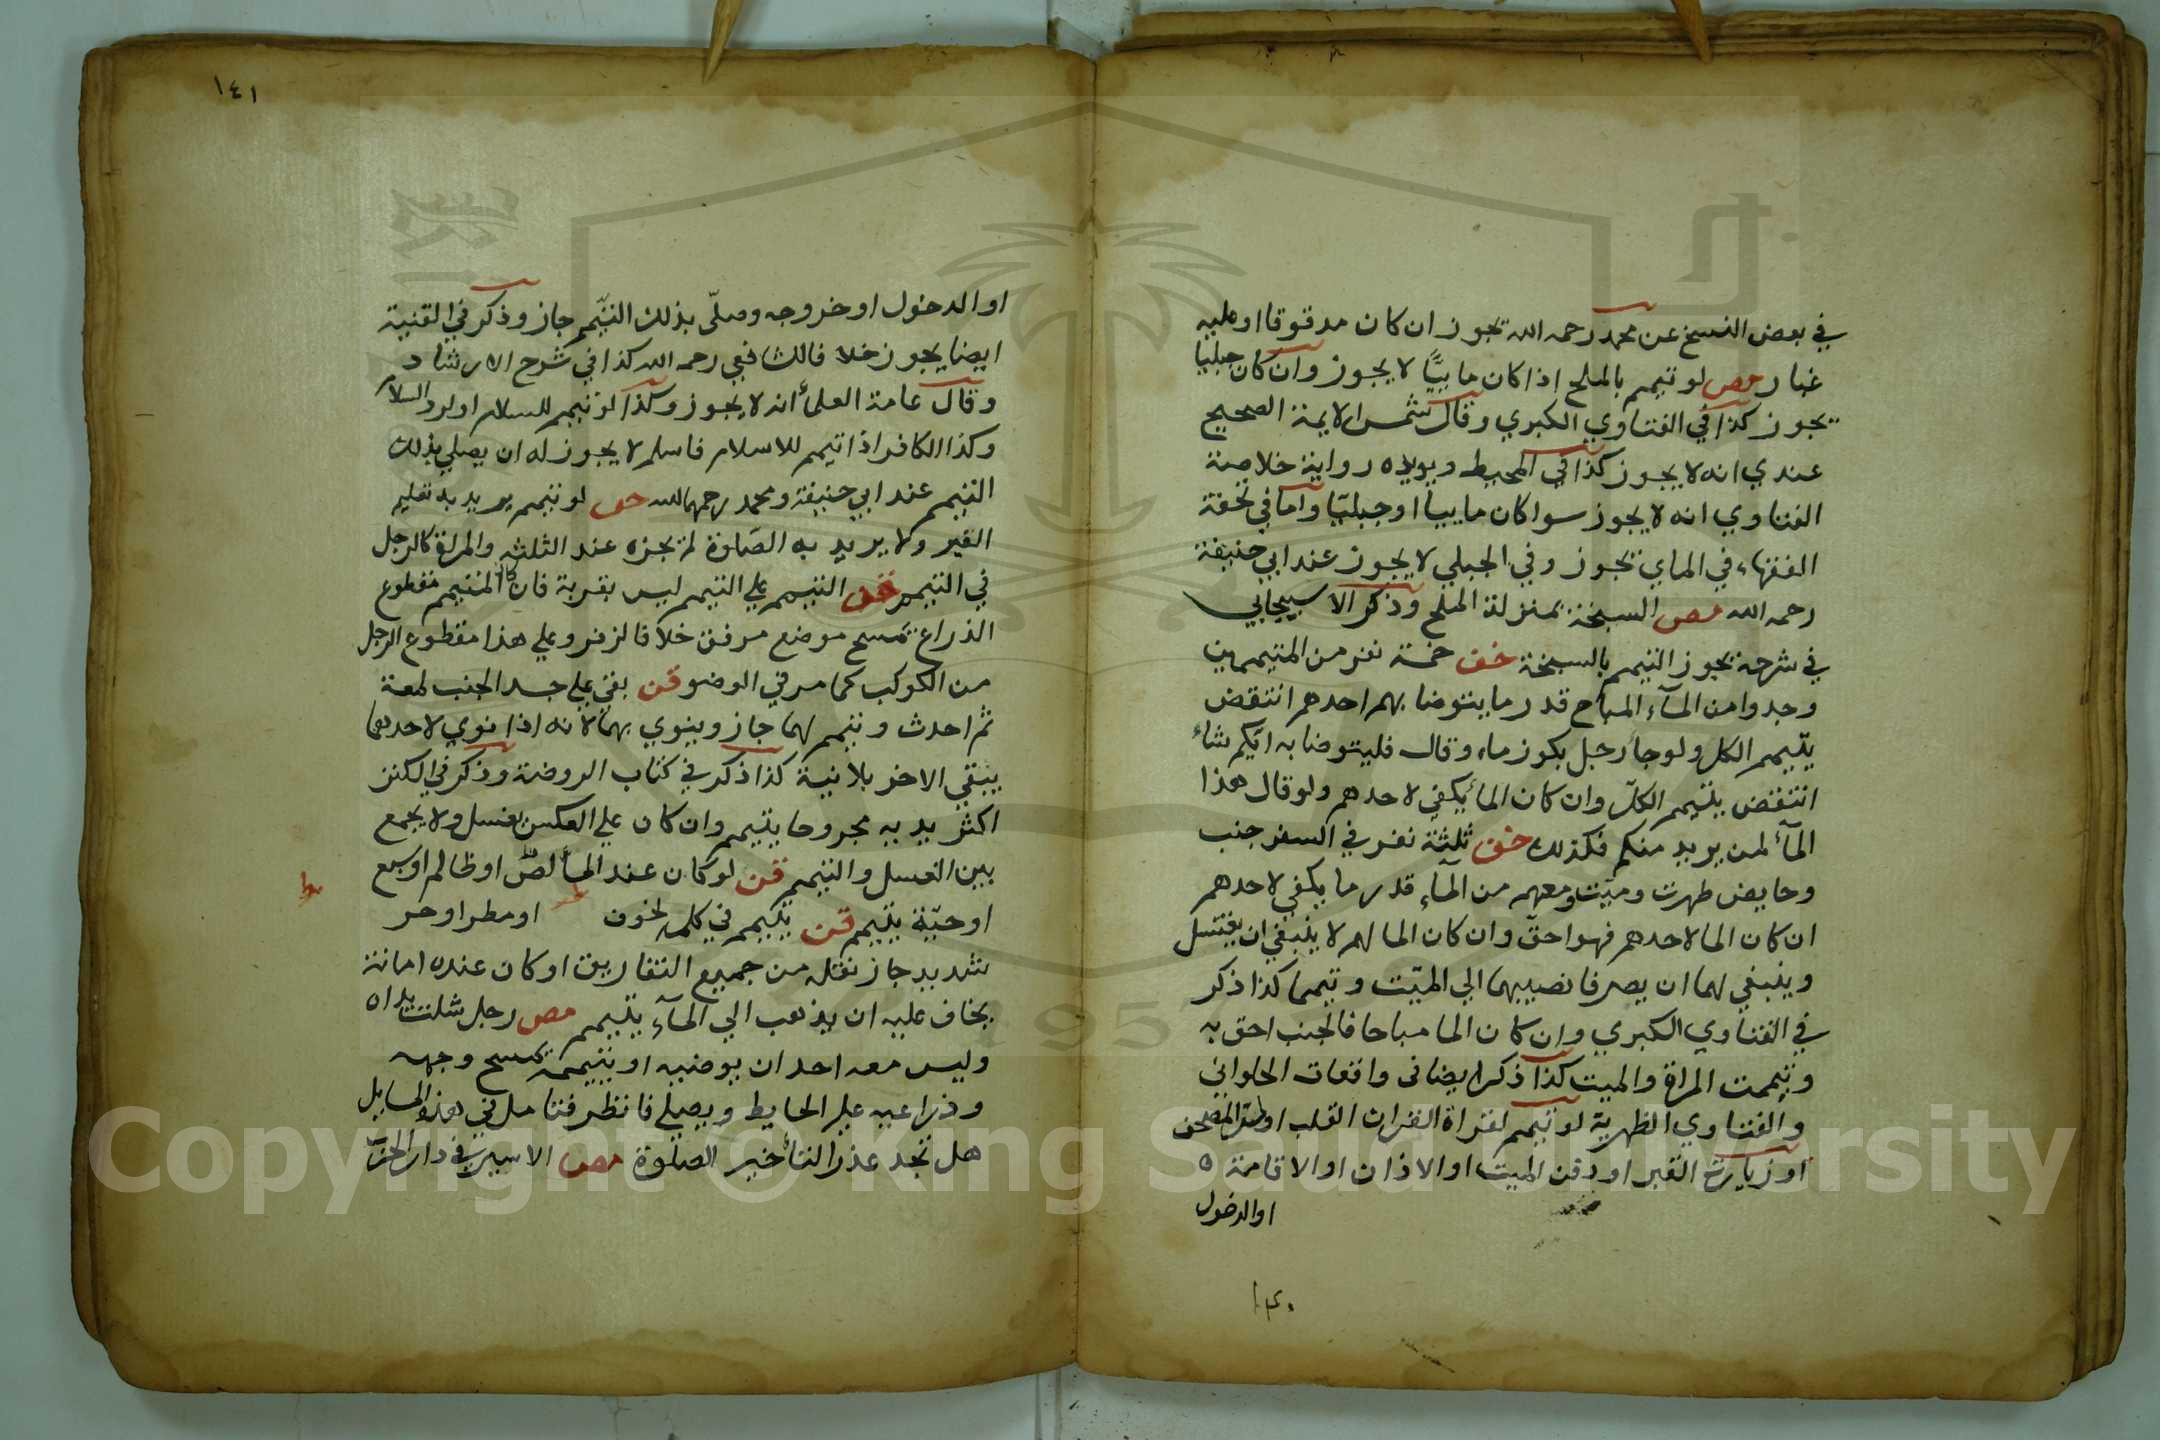 في بعض النسخ عن محمد رحمه الله تجوز ان كان مدقوقا او عليه
غبار حص لو تيمم بالملح اذا كان مابيًّا لا يجوز وان كان جبليا
يجوز كذا في الفتاوي الكبري وقال شمس الايمة الصحيح
عندي انه لا يجوز كذا في المحيط ويويده رواية خلاصة
الفتاوي انه لا يجوز سوا كان مابيا او جبليّا واما في تحفة
الفقهاء في الماي تجوز وفي الجبلي لا يجوز عند ابي حنيفة
رحمه الله مص السبخة بمنزلة الملح وذكر الاسبيجابي
في شرحه يجوز التيمم بالسبخة خف خمسة نفر من المتيممين
وجدوا من المآء المباح قدر ما يتوضا بهم احدهم انتقض
يتيمم الكل ولو جاء رجل بكوز ماء وقال فليتوضا به ايّكم شاء
انتقض يتيمم الكلّ وان كان الماء يكفي لاحدهم ولو قال هذا
المآء لمن يريد منكم فكذلك خف ثلثة نفر في السفر جنب
وحايض طهرت وميّت ومعهم من المآء قدر ما يكفي لاحدهم
ان كان الما لاحدهم فهو احقّ وان كان الما لهم لا ينبغي ان يغتسل
وينبغي لهما ان يصرفا نصيبهما الي الميّت وتيمما كذا ذكر
في الفتاوي الكبري وان كان الما مباحا فالجنب احق به
وتيممت المراة والميت كذا ذكر ايضا في واقعات الحلواني
والفتاوي الظهرية لو تيمم لقراة القران القلب او المصحف
او زيارة القبر او دفن الميت او الاذان او الاقامة ه
او الدخول
١٤٠
١٤١
او الدخول او خروجه وصلّى بذلك التيّمم جاز وذكر في القنية
ايضا يجوز خلا فالشافعي رحمه الله كذا في شرح الارشاد
وقال عامة العلماء انه لا يجوز وكذا لو تيمم للسلام او لرد السلام
وكذا الكافر اذا تيمم للاسلام فاسلم لا يجوز له ان يصلي بذلك
التيمم عند ابي حنيفة ومحمد رحمهما الله حف لو تيمم يريد به تعليم
الغير ولا يريد به الصّلوة لم يجزه عند الثلثه والمراة كالرجل
في التيمم خف التيمم علي التيمم ليس بقربة فان كان المتيمم مقطوع
الذراع تمسح موضع مرفق خلافا لزفر وعلي هذا مقطوع الرجل
من الكوكب كما مر في الوضو قن بقي علي جسد الجنب لمعة
ثم احدث وتيمم لهما جاز وينوي بهما لانه اذا نوي لاحدهما
يبقي الاخر بلا نية كذا ذكر في كتاب الروضة وذكر في الكنز
اكثر يديه مجروحا يتيمم وان كان علي العكس يغسل ولا يجمع
بين الغسل والتيمم قن لو كان عند الماء لصّ او ظالم او سبع
او حيّة يتيمم قن يتيمم في كله لخوف او مطر او حر
شديد جاز نقله من جميع التفاريق او كان عنده امانة
يخاف عليه ان يذهب الي المآء يتيمم مص رجل شلت يداه
وليس معه احد ان يوضيه او يتيممه تمسح وجهه
وذراعيه علي الحايط ويصلي فانظر فتامل في هذه المسايل
هل تجد عذر التأخير الصلوة مص الاسير في دار الحرب